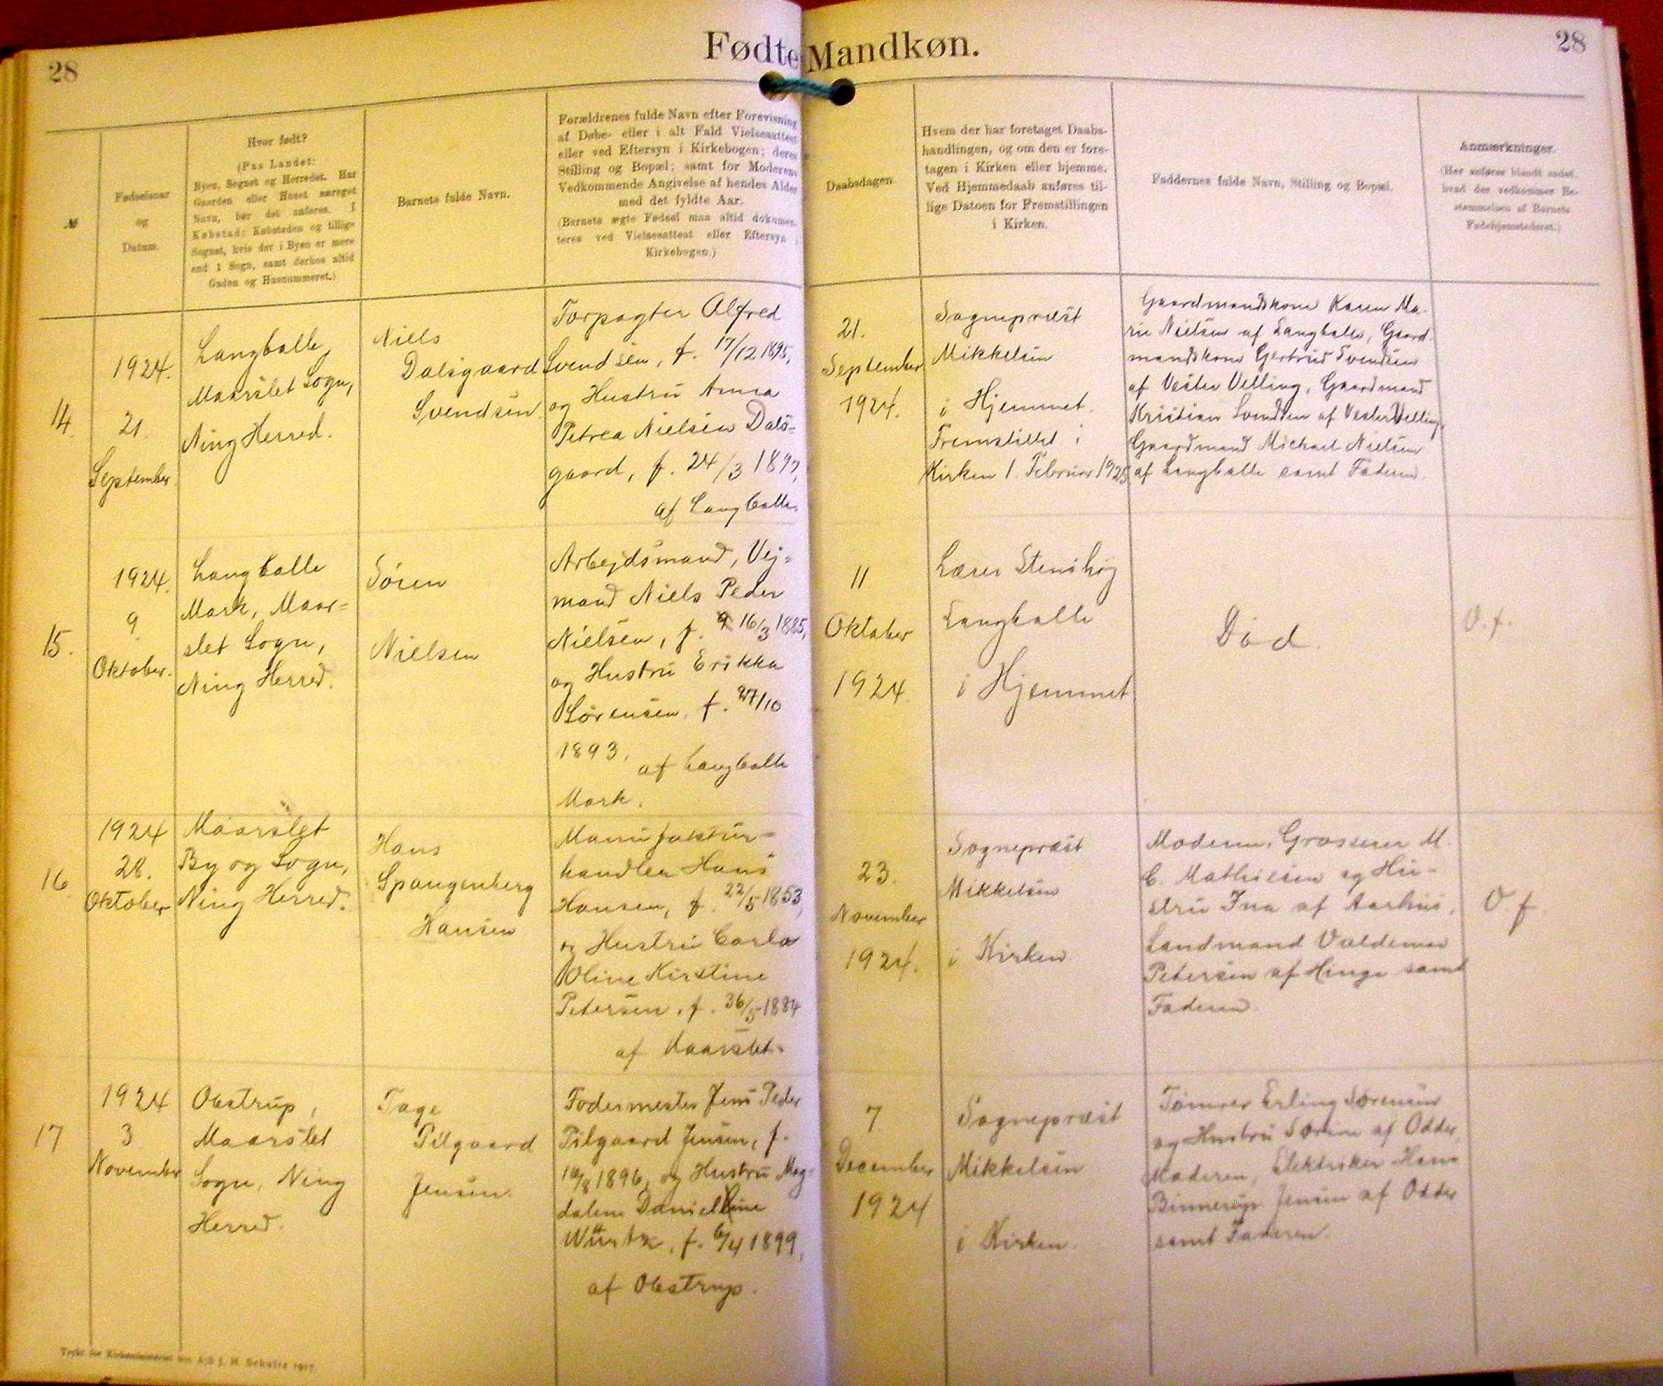 28
Fødte Mandkøn.
28
№
Fødselsaar
og
Datum.
Hvor født?
(Paa Landet:
Byen, Sognet og Herredet. Har
Gaarden eller Huset særeget
Navn, bør det anføres. I
Købstad: Købstaden og tillige
Sognet, hvis der i Byen er mere
end 1 Sogn, samt derhos altid
Gaden og Husnummeret.)
Barnets fulde Navn.
Forældrenes fulde Navn efter Forevisning
af Døbe- eller i alt Fald Vielsesattest
eller ved Eftersyn i Kirkebogen; deres
Stilling og Bopæl; samt for Moderens
Vedkommende Angivelse af hendes Alder
med det fyldte Aar.
(Barnets ægte Fødsel maa altid dokumen-
teres ved Vielsesattest eller Eftersyn i
Kirkebogen.)
Daabsdagen.
Hvem der har foretaget Daabs-
handlingen, og om den er fore-
tagen i Kirken eller hjemme.
Ved Hjemmedaab anføres til-
lige Datoen for Fremstillingen
i Kirken.
Faddernes fulde Navn, Stilling og Bopæl.
Anmærkninger.
(Her anføres blandt andet,
hvad der vedkommer Be-
stemmelsen af Barnets
Fødehjemstederet.)
14.
1924.
21.
September
Langballe
Maarslet Sogn,
Ning Herred.
Niels
Dalsgaard
Svendsen
Forpagter Alfred
Svendsen, f. 17/12 1895,
og Hustru Anna
Petrea Nielsen Dals=
gaard, f. 24/3 1897,
af Langballe.
21.
September
1924.
Sognepræst
Mikkelsen
i Hjemmet.
Fremstillet i
Kirken 1. Februar 1925
Gaardmandskone Karen Ma-
rie Nielsen af Langballe, Gaard-
mandskone Gertrud Svendsen
af Vester Velling, Gaardmand
Kristian Svendsen af Vester Velling,
Gaardmand Michael Nielsen
af Langballe samt Faderen.
15.
1924.
9.
Oktober.
Langballe
Mark, Maar=
slet Sogn,
Ning Herred.
Søren
Nielsen
Arbejdsmand, Vej=
mand Niels Peder
Nielsen, f. 16/3 1885,
og Hustru Erikka
Sørensen, f. 27/10
1893,
af Langballe
Mark.
11
Oktober
1924
Lærer Stenshøj
Langballe
i Hjemmet
Død.
O. f.
16
1924
28.
Oktober
Maarslet
By og Sogn,
Ning Herred.
Hans
Spangenberg
Hansen
Manufaktur=
handler Hans
Hansen, f. 22/5 1853,
og Hustru Carla
Oline Kirstine
Petersen, f. 36/5 1884
af Maarslet.
23.
November
1924.
Sognepræst
Mikkelsen
i Kirken
Moderen, Grosserer M.
C. Mathiesen og Hu-
stru Ina af Aarhus,
Landmand Valdemar
Petersen af Hinge samt
Faderen.
O. f
17
1924
3
November
Obstrup,
Maarslet
Sogn, Ning
Herred.
Tage
Pilgaard
Jensen.
Fodermester Jens Peder
Pilgaard Jensen, f.
10/8 1896, og Hustru Mag=
dalene Danieline
f. 6/4 1899,
af Obstrup.
7
December
1924
Sognepræst
Mikkelsen
i Kirken.
Tømrer Erling Sørensen
og Hustru Sørine af Odder,
Moderen, Elektriker Hans
Binnerup Jensen af Odder
samt Faderen.
Trykt for Kirkeministeriet hos A/S J. H. Schultz 1917.